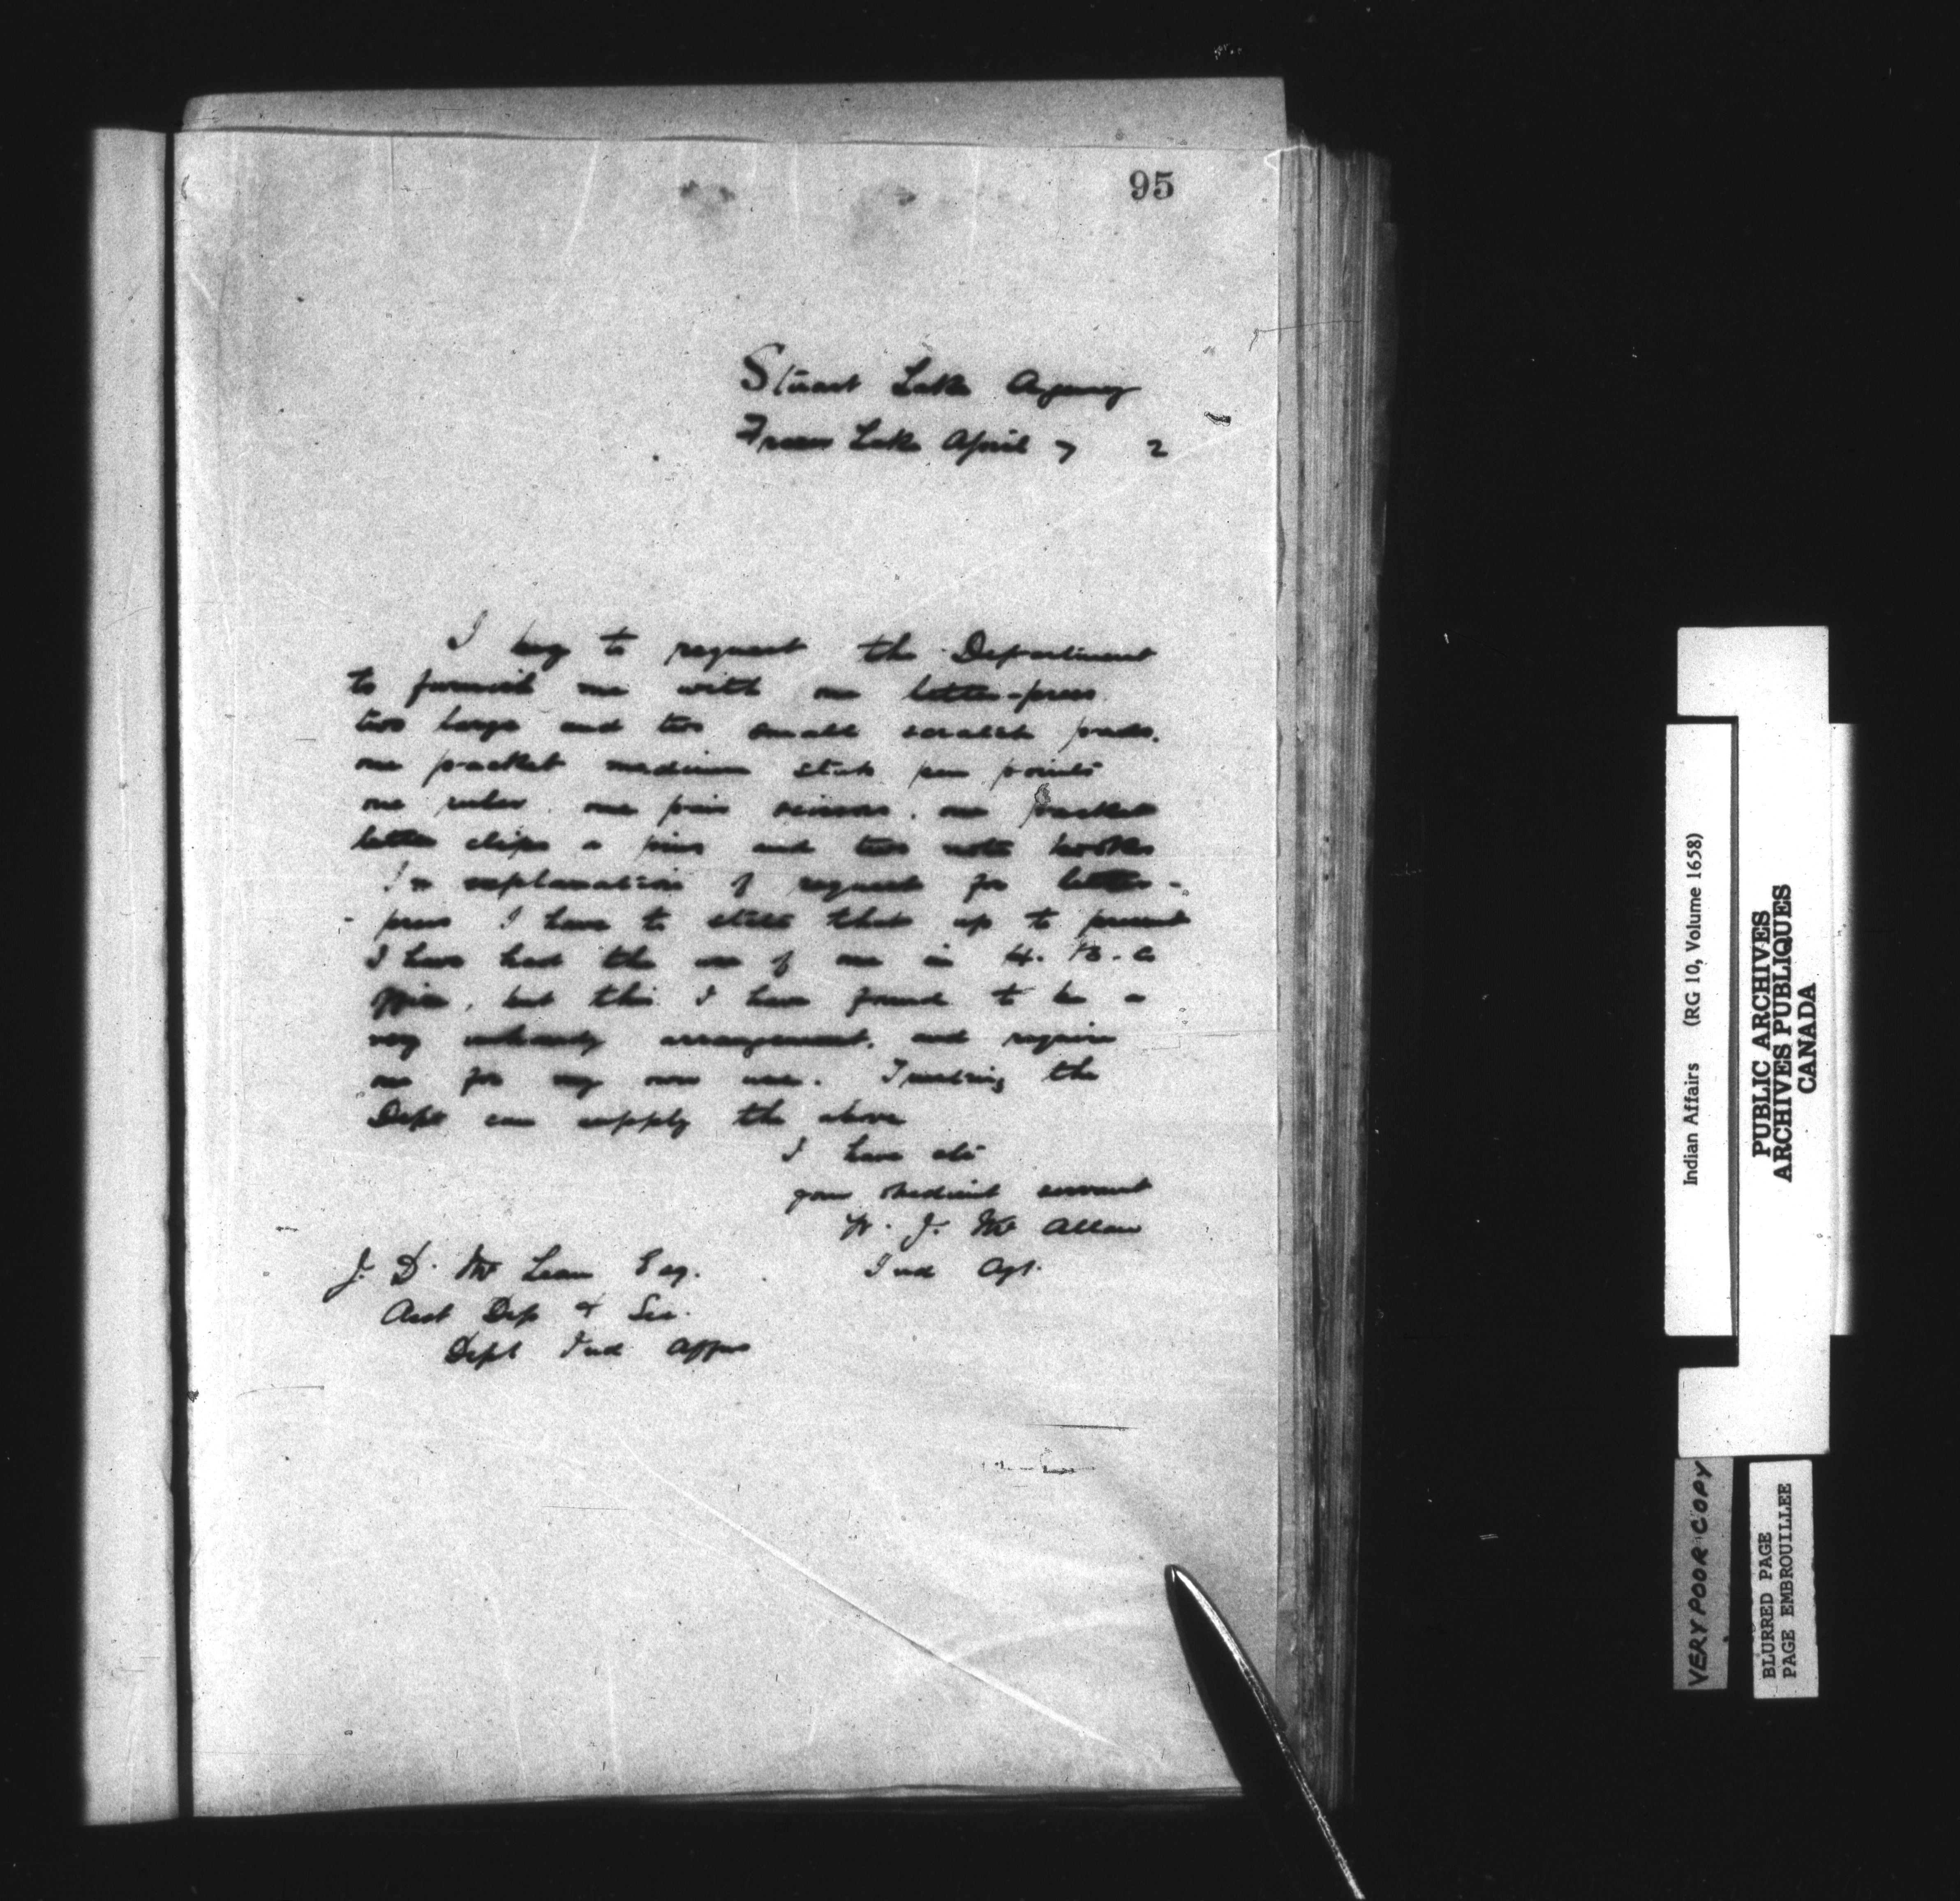 95
Stuart Lake Agency
Fraser Lake April 7 2
I beg to request the Department
to furnish me with one letter-press
two large and two small scratch pads.
one packet medium stub pen points
one ruler. one pair scissors. one packet
letter clips a pins and two note books
In explanation of request for letter-
- press I have to state that up to present
I have had the use of one in H. B. C
Office, but this I have found to be a
very unhandy arrangement. and require
one for my own use. Trusting the
Dept can supply the above
I have etc
your obedient servant
W. J. Mc Allan
Ind Agt.
J. D. Mc Lean Esq.
Asst Dep & Sec.
Dept Ind Affrs
Indian Affairs (RG 10, Volume 1658)
PUBLIC ARCHIVES
ARCHIVES PUBLIQUES
CANADA
VERY POOR COPY
BLURRED PAGE
PAGE EMBROUILLEE